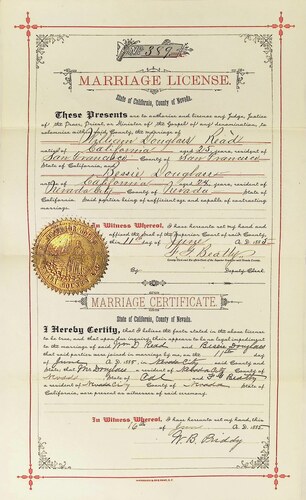 No. 387
MARRIAGE LICENSE.
State of California, County of Nevada.
These Presents are to authorize and license any Judge, Justice
of the Peace, Priest, or Minister of the Gospel of any denomination, to
solemnize within said County, the marriage of
William Douglass Read
native of California aged 25 years, resident of
San Francisco County of San Francisco
State of California, and
Bessie Douglass
native of California aged 24 years, resident of
Nevada City County of Nevada State of
California. Said parties being of sufficient age and capable of contracting
marriage.
In Witness Whereof, I have hereunto set my hand and
affixed the Seal of the Superior Court of said County,
this 11th day of June A.D. 1895
F. G. Beatty
By Deputy Clerk.
MARRIAGE CERTIFICATE.
State of California, County of Nevada.
I Hereby Certify, that I believe the facts stated in the above license
to be true, and that upon due inquiry, there appears to be no legal impediment
to the marriage of said Wm D. Read and Bessie Douglass
that said parties were joined in marriage by me on the 11th day
of June A.D. 1895, in Nevada City County and
State; that a resident of Nevada City County of
Nevada State of Cal and F. G. Beatty
a resident of Nevada City County of Nevada State of
California, were present as witnesses of said ceremony.
In Witness Whereof, I have hereunto set my hand, this
16th of June A.D. 1895
W. B. Priddy